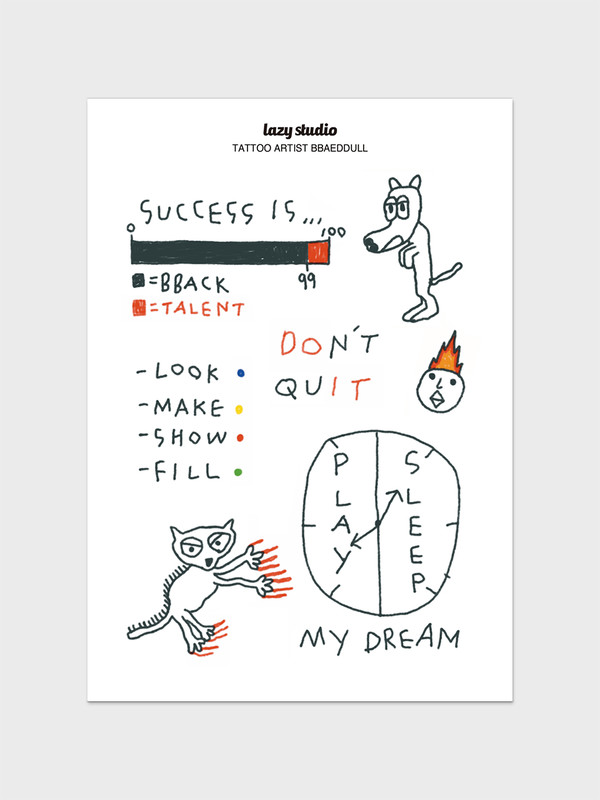 lazy studio
TATTOO ARTIST BBAEDDULL
SUCCESS IS...
0
100
99
■=BBACK
■=TALENT
DON'T
QUIT
-LOOK
-MAKE
-SHOW
-FILL
PLAY
SLEEP
MY DREAM